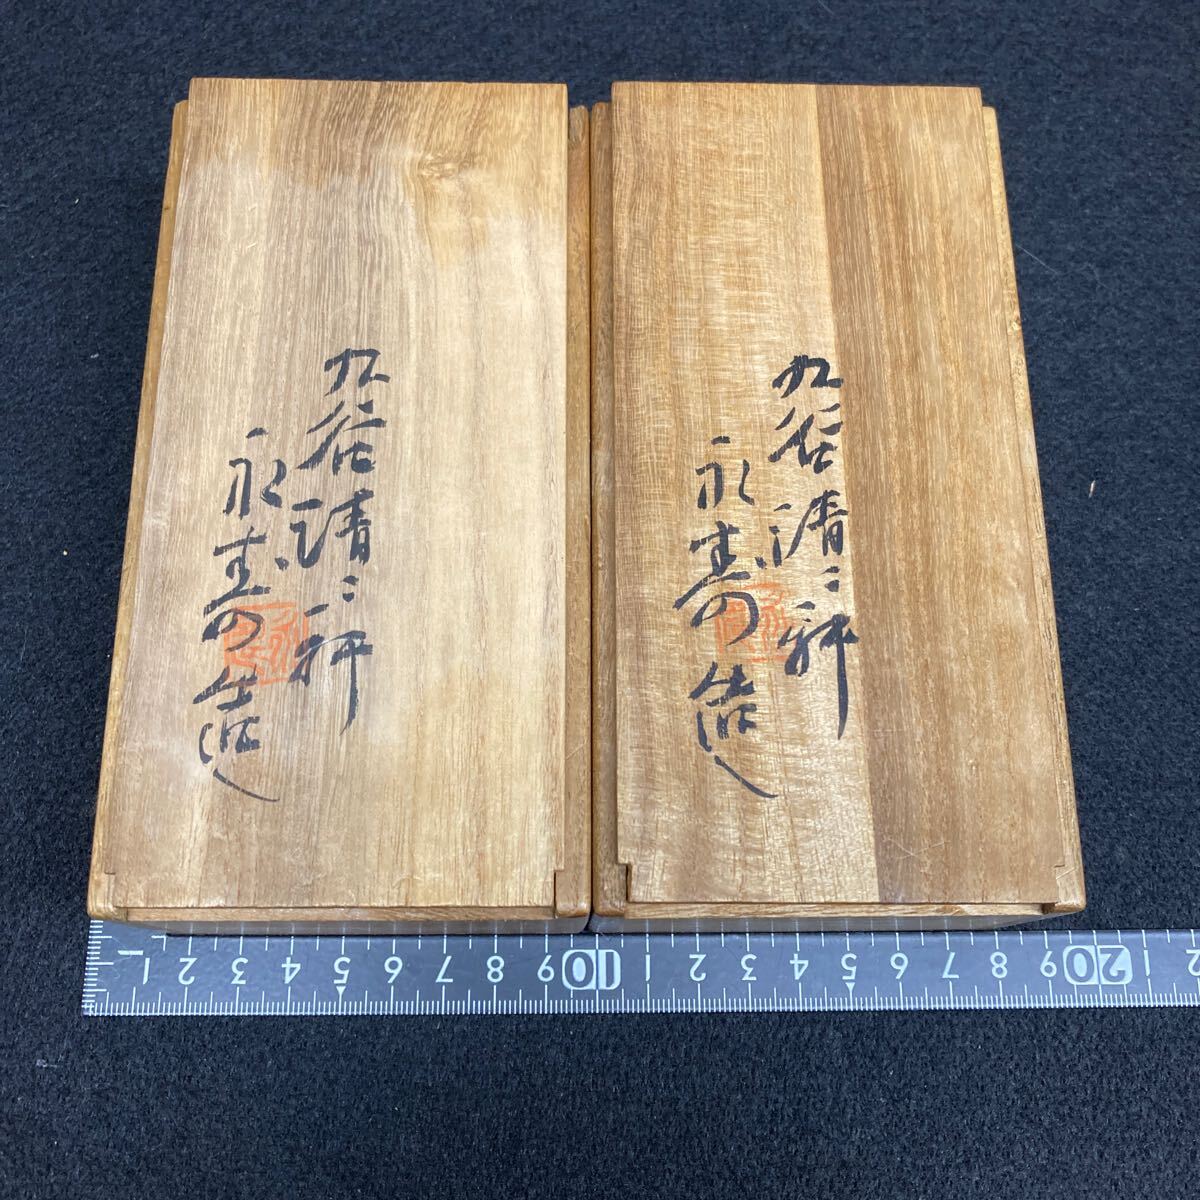 九谷清々軒
永寿造
九谷清々軒
永寿造
1 2 3 4 5 6 7 8 9 10 1 2 3 4 5 6 7 8 9 20 1 2